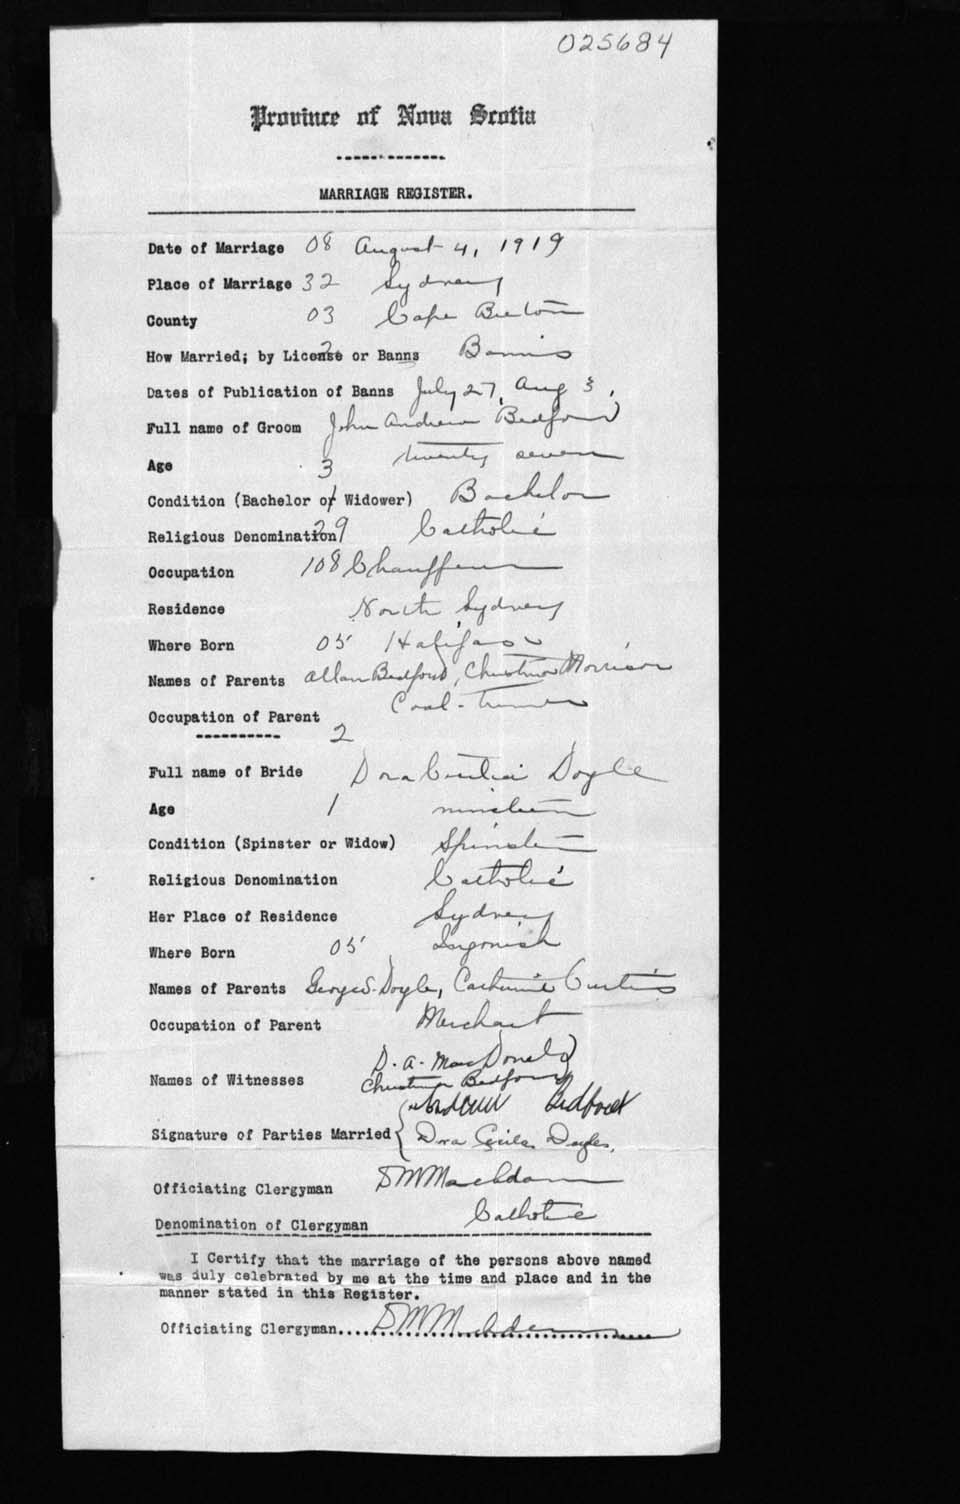 025684
Province of Nova Scotia
MARRIAGE REGISTER.
Date of Marriage 08 August 4, 1919
Place of Marriage 32 Sydney
County 03 Cape Breton
How Married; by License or Banns 2 Banns
Dates of Publication of Banns July 27, Aug 3,
Full name of Groom John Andrew Bedford
Age 3 twenty seven
Condition (Bachelor or Widower) 1 Bachelor
Religious Denomination 29 Catholic
Occupation 108 Chauffeur
Residence North Sydney
Where Born 05 Halifax
Names of Parents Allan Bedford, Christina Morrison
Occupation of Parent Coal-
2
Full name of Bride Dora Cecilia Doyle
Age 1 nineteen
Condition (Spinster or Widow) Spinster
Religious Denomination Catholic
Her Place of Residence Sydney
Where Born 05 Ingonish
Names of Parents George Doyle, Catherine Curtis
Occupation of Parent Merchant
D. A. MacDonald
Names of Witnesses Christina Bedford
Bedford
Signature of Parties Married Dora Cecila Doyle,
Officiating Clergyman
Denomination of Clergyman Catholic
I Certify that the marriage of the persons above named
was duly celebrated by me at the time and place and in the
manner stated in this Register.
Officiating Clergyman....